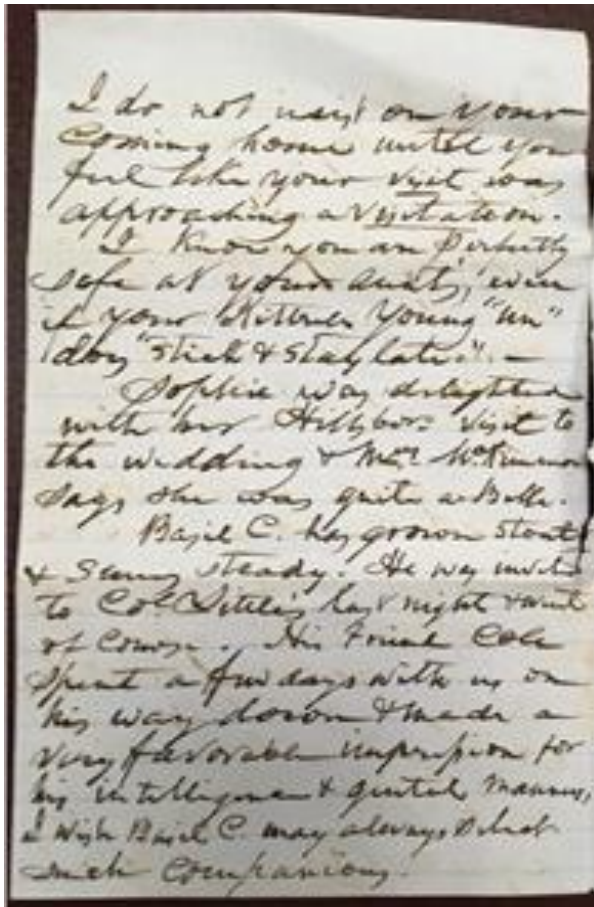 I do not insist on your
coming home until you
feel like your visit was
approaching a visitation.
I know you are perfectly
safe at your aunts, even
if your Kittrell Young "un"
does "stick & stay late". —
Sophie was delighted
with her Hillsboro visit to
the wedding & Mrs. McKinnon
says she was quite a Belle.
Basil C. has grown stout
& seems steady. He was invited
to Col. last night & went
of course. His Friend Cole
spent a few days with us on
his way down & made a
very favorable impression for
his intelligence & genteel manners,
I wish Basil C. may always select
such companions.